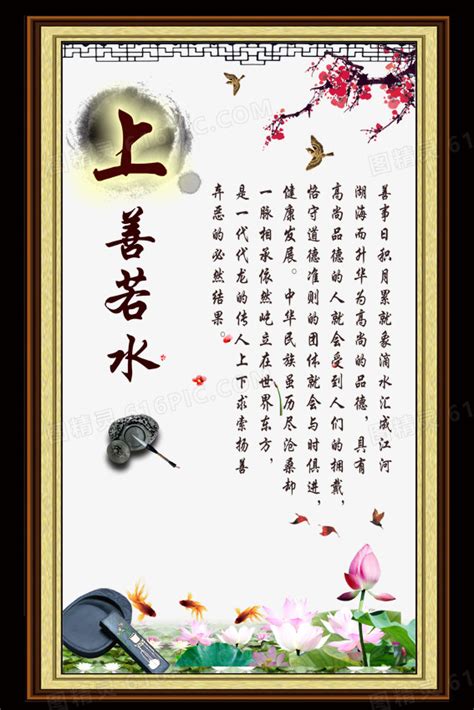 上善若水
善事日积月累就象滴水汇成江河
湖海而升华为高尚的品德，具有
高尚品德的人就会受到人们的拥戴，
恪守道德准则的团体就会与时俱进，
健康发展。中华民族虽历尽沧桑却
一脉相承依然屹立在世界东方，
是一代代龙的传人上下求索扬善
弃恶的必然结果。
图精灵 616PIC.COM